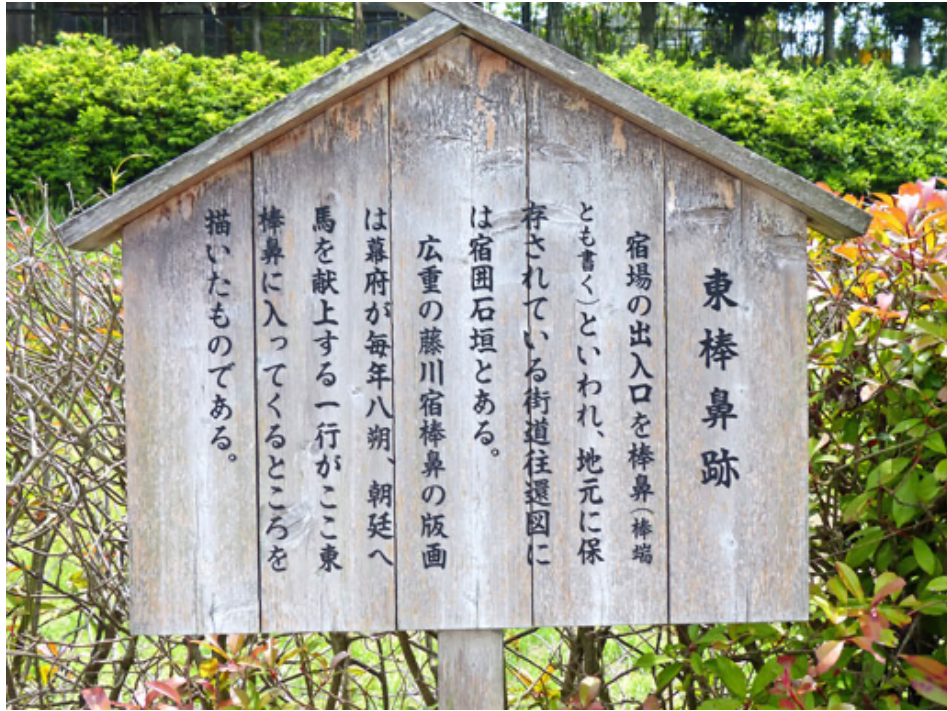 東棒鼻跡
宿場の出入口を棒鼻(棒端
とも書く)といわれ、地元に保
存されている街道往還図に
は宿囲石垣とある。
広重の藤川宿棒鼻の版画
は幕府が毎年八朔、朝廷へ
馬を献上する一行がここ東
棒鼻に入ってくるところを
描いたものである。